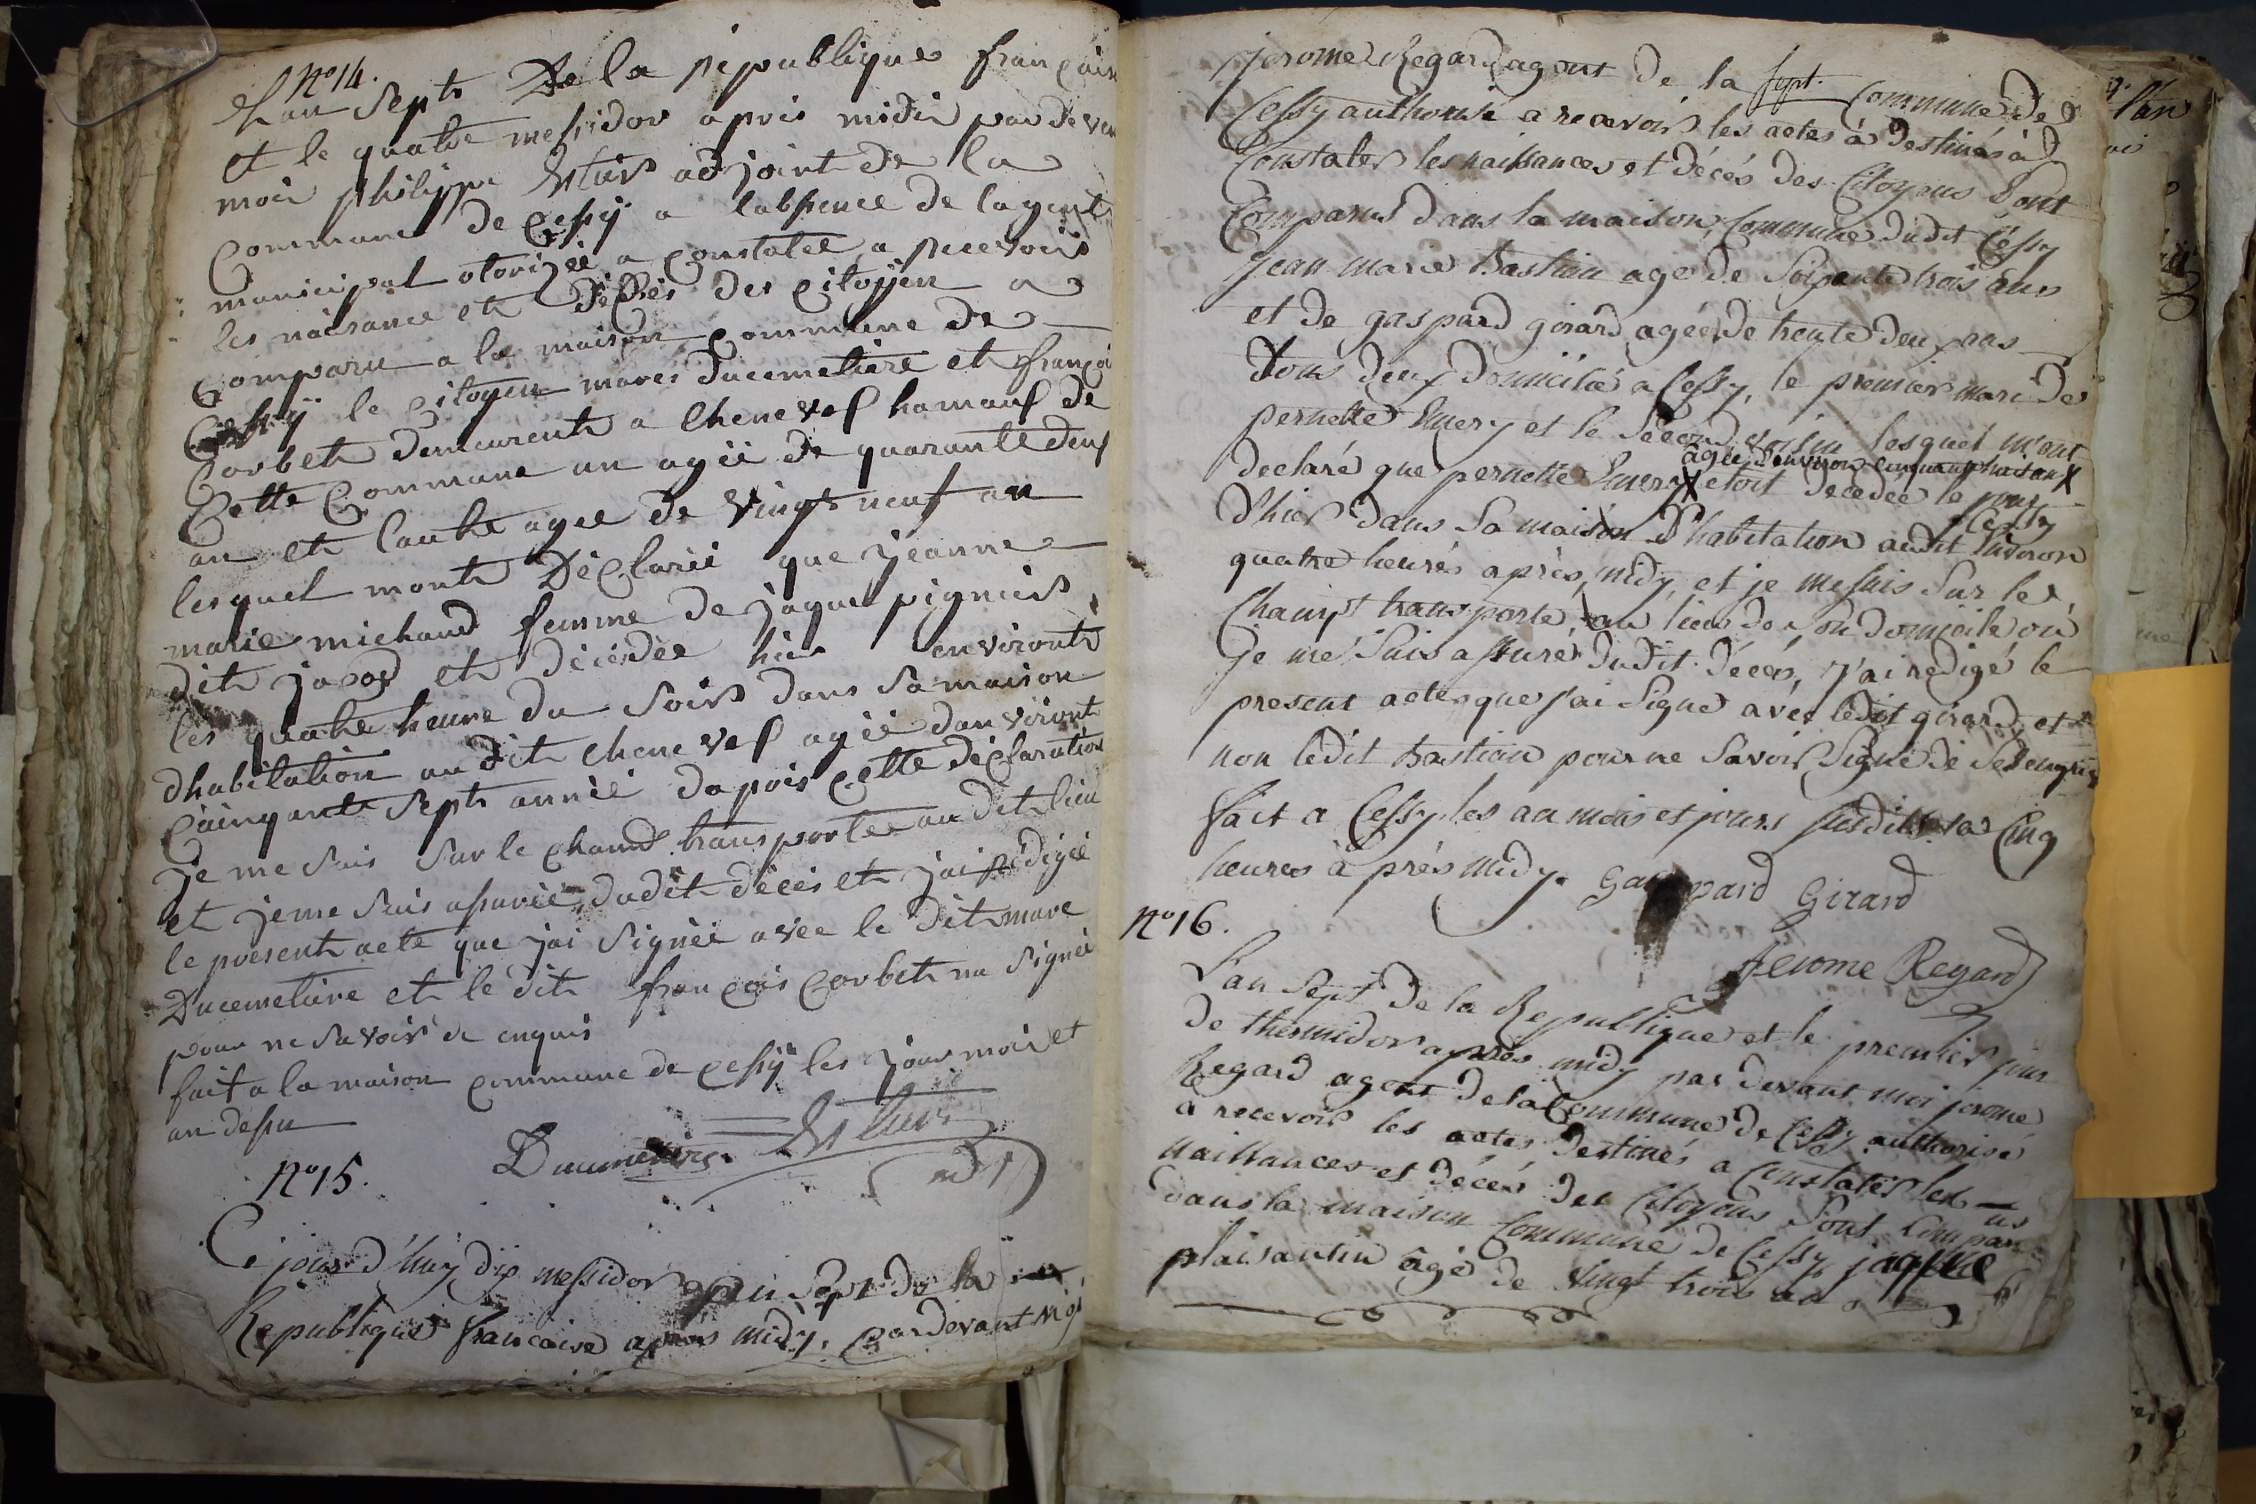 n° 14.
Lan septs De la republique francaise
et le quatre messidor apris midis par devan
moi philippe adjoint de la
Commune de Cessÿ a labsence de lagent
municipal otorizée a constatée a recevois
les naisance et déssés des citoÿen a
comparu a la maison commune de
Cessÿ le citoyen mares ducemetiere et françoi
Corbets demeurents a Chenevef hamauf de
Cette Commune un agée de quarante deuf
an et lautre agée de vingts neuf an
lesquel monts Déclarée que jeanne
marie michaud femme de jaques pigniers
dits jacod ets décédée hier environts
les quatre heure du soirs dans sa maison
dhabitation au dits chenevef agée danvironts
cainqante septs année dapois cette déclaration
je me suis sur le champs transportée au dit lieu
et jeme suis asurée dudits déces ets jai rédigée
le presents acte que jai signée avec le dits mare
Ducemetiere ets le dits françois Corbets na signée
pour ne savoir de enquis
fait a la maison commune de cessÿ les jour moi et
an desu
Ducemetiere
adj
n° 15.
Ce jour d'huy dix messidor an sept de la
Republique francaise apres midy, pardevant moi
jerome Regard agent de la sept. Commune de
Cessy authorisé a recevoir les actes à destinés à
Constater les naissances et décés des Citoyens Sont
Comparus dans la maison Commune dudit Céssy
jean marie Bastian agé de Soixante trois ans
et de gaspard girard agée de trente deux ans
tous deux domicilié a Cessy, le premier mari de
pernette Emery et le Second voisin lesquel m'ont
agée d'environ cinquante huit ans X
declaré que pernette Emery X etoit decedée le jour
Cessy
d'hier dans Sa maison d'habitation audit Environ
quatre heures après midy, et je me suis Sur le
Champt transporté au lieu de son domicile où
je me suis assuré dudit décés, j'ai redigé le
present acte que j'ai Signé avec ledit girard et
non ledit Bastian pour ne Savoir Signé de Se enquis
fait a Cessy les an mois et jours susdits a Cinq
heures à prés midy. Gaspard Girard
Jerome Regard
n° 16.
L'an Sept de la Republique et le premier jour
de thermidor après midy par devant moi jerome
Regard agent de la Commune de Cessy authorisé
a recevoir les actes Destinés a Constater les
naissances et décés des Citoyens Sont Comparus
dans la maison Commune de Cessy jacque
plaisantin âgé de vingt trois an